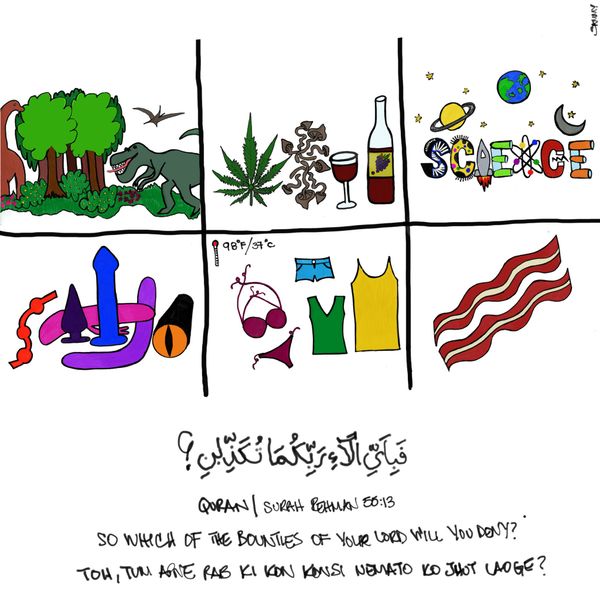 SCIENCE
98°F/37°C
فَبِاَيِّ اٰلَآءِ رَبِّكُمَا تُكَذِّبٰنِ؟
QURAN/ SURAH REHMAN 55:13
SO WHICH OF THE BOUNTIES OF YOUR LORD WILL YOU DENY?
TOH, TUM APNE RAB KI KON KONSI NEMATO KO JHUT LAOGE?